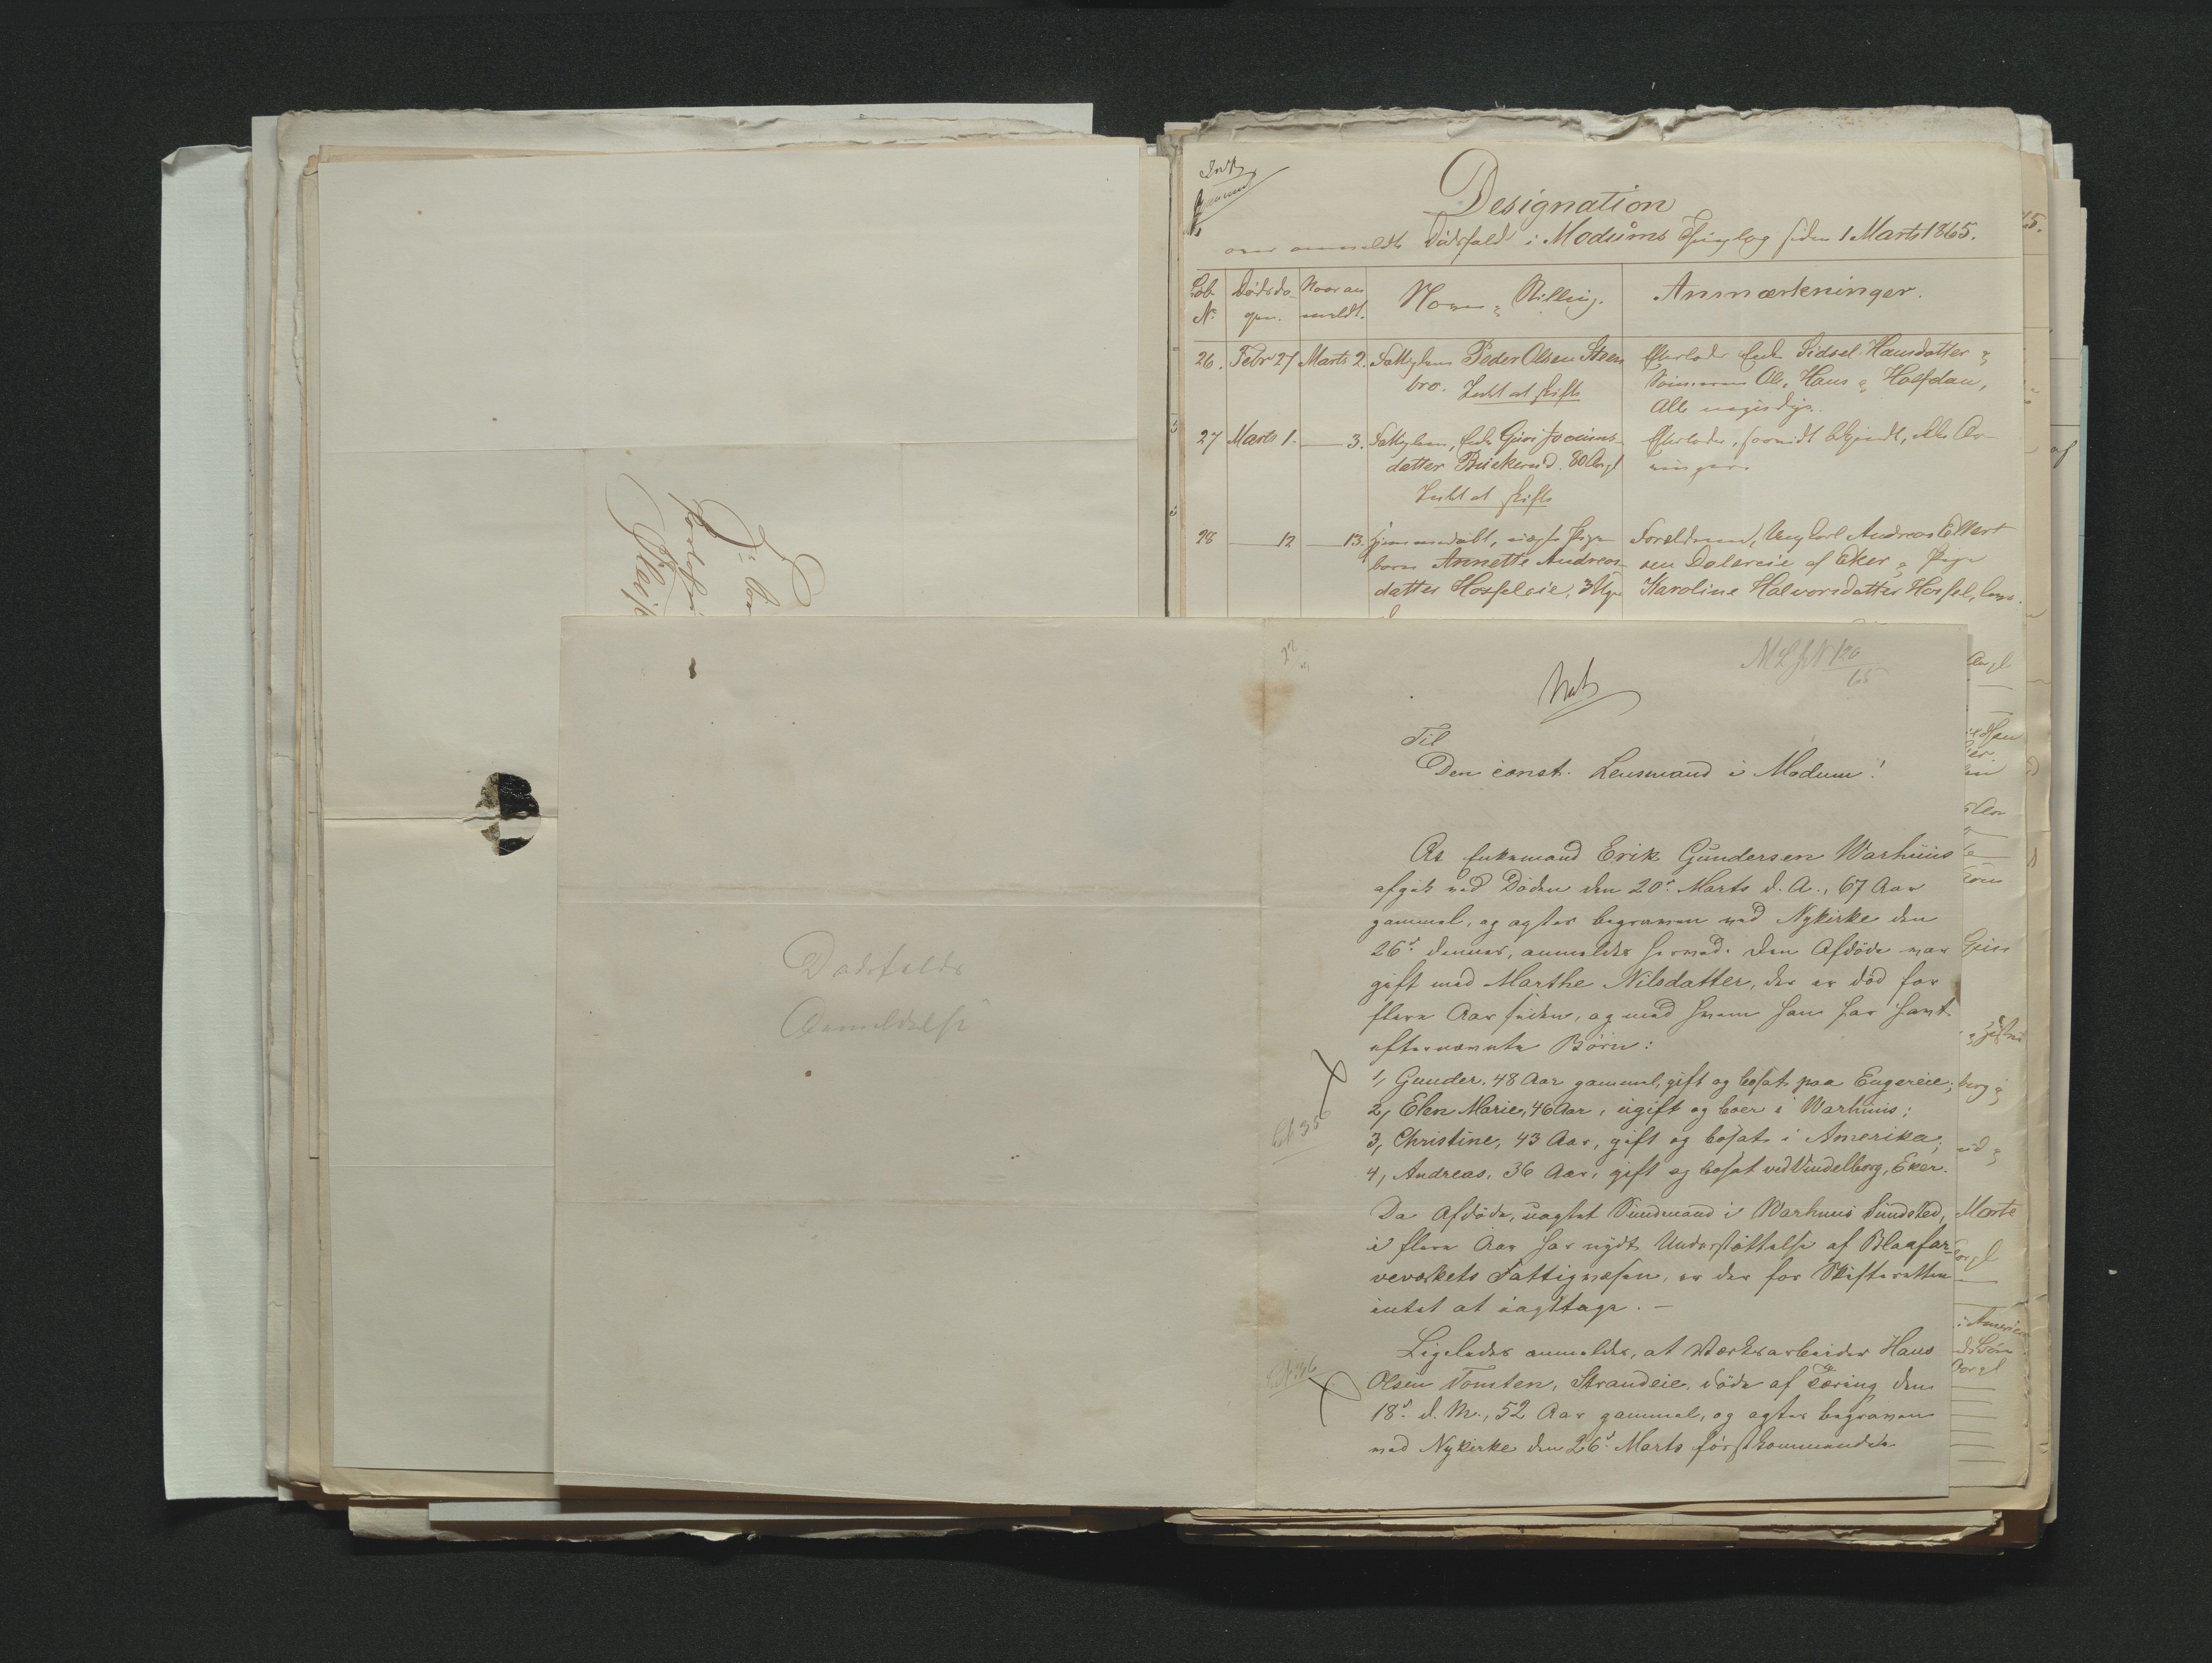 Designation
over anmeldte Dødsfald i Modums Thinglag siden 1 Marts 1865.
Løb No. Dødsda-gen. Naar an-meldt. Navn & Stilling. Anmærkninger.
26. Febr 27 Marts 2. Fattiglem Peder Olsen Steen- Efterlader Enke Sidsel Hansdatter &
bro. Intet at skifte Sønnerne Ole, Hans & Halfdan,
Alle myndige.
27 Marts 1. — 3. Fattiglem, Enke Guri Joeims- Efterlader, saavidt bekjendt, ikke Ar-
datter Buskerud. 80 Aar gl vinger.
Intet at skifte
28 — 12 — 13. hjemmedøbt, uægte Pige- Forældrene, Ungkarl Andreas Ellert-
barn Annette Andreas- sen Dolereie af Eker & Pige
datter Hosseleie, 3 Uger Karoline Halvorsdatter Hossel,
Dødsfalds
Anmeldelse
Til
Den const. Lensmand i Modum!
At Enkemand Erik Gundersen Warhuus
afgik ved Døden den 20de Marts d. A., 67 Aar
gammel, og agtes begraven ved Nykirke den
26de dennes, anmeldes hermed. Den Afdøde var
gift med Marthe Nilsdatter, der er død for
flere Aar siden, og med hvem han har havt
efternævnte Børn:
1, Gunder, 48 Aar gammel, gift og bosat paa Engereie;
2, Elen Marie, 46 Aar, ugift og boer i Warhuus;
3, Christine, 43 Aar, gift og bosat i Amerika;
4, Andreas, 36 Aar, gift og bosat ved Vindelborg, Eker.
Da Afdøde, uagtet Sundmand i Warhuus Sundsted,
i flere Aar har nydt Understøttelse af Blaafar-
veværkets Fattigvæsen, er der for Skifteretten
intet at iagttage. —
Ligeledes anmeldes, at Værksarbeider Hans
Olsen Tomten, Strandeie, døde af Tæring den
18de d. M., 52 Aar gammel, og agtes begraven
ved Nykirke den 26de Marts førstkommende